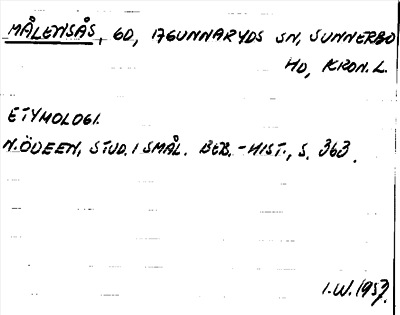 MÅLENSÅS, GD, 17GUNNARYDS SN, SUNNERBO
HD, KRON. L.
ETYMOLOGI.
N. ÖDEEN, STUD. I SMÅL. BEB.-HIST., S. 363.
I.W. 1957.